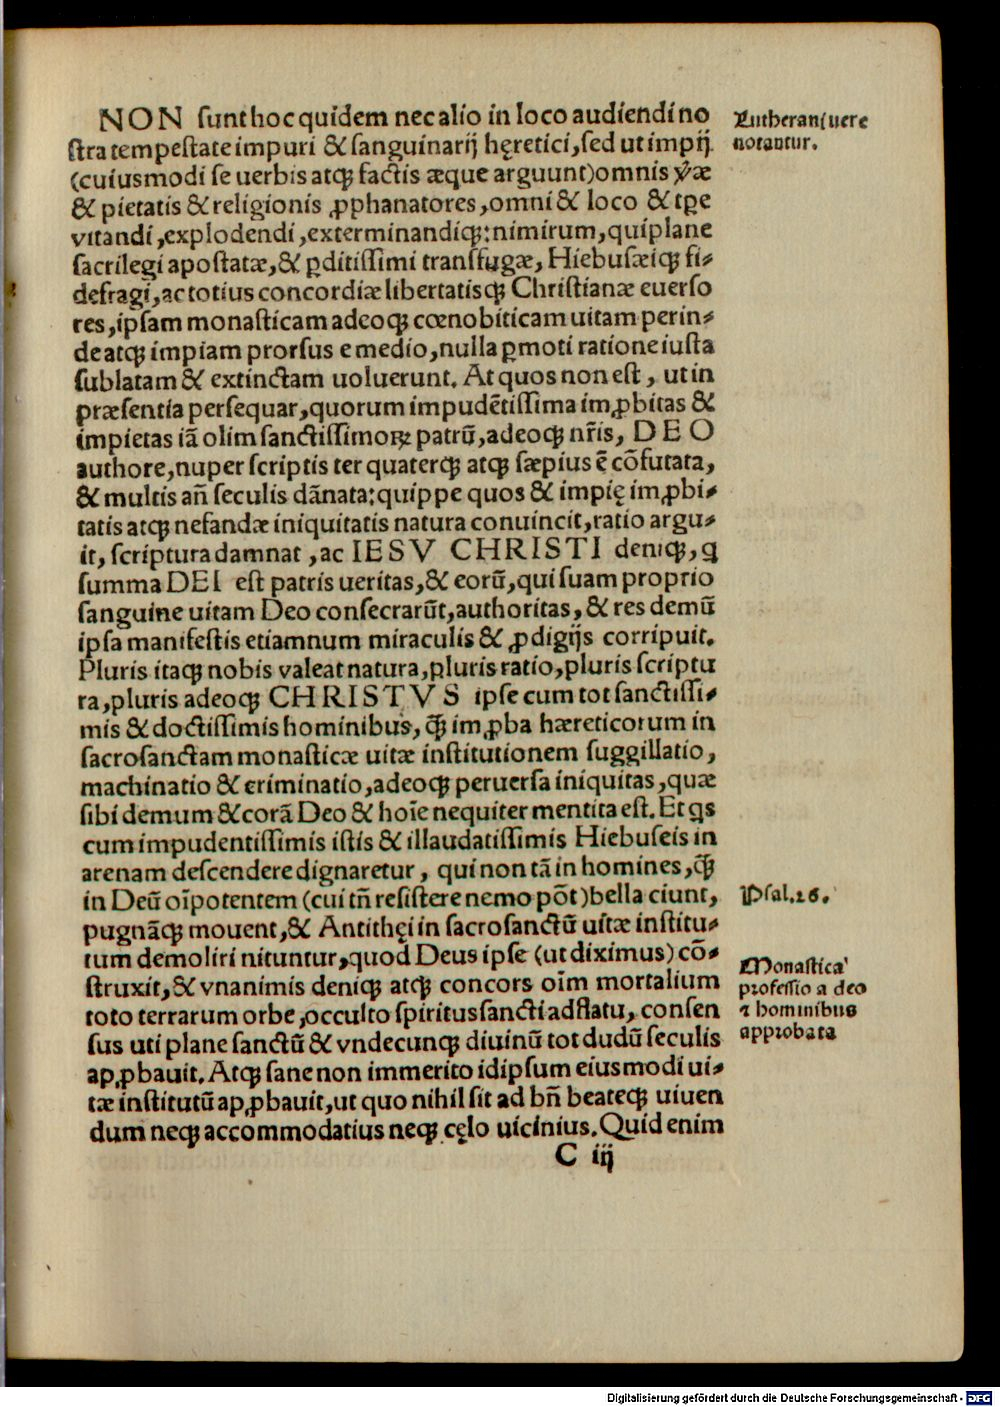 NON sunt hoc quidem nec alio in loco audiendi no
stra tempestate impuri & sanguinarij hęretici, sed ut impij
(cuiusmodi se uerbis atq; factis æque arguunt) omnis v̓æ
& pietatis & religionis ꝓphanatores, omni & loco & tꝑe
vitandi, explodendi, exterminandiq;: nimirum, qui plane
sacrilegi apostatæ, & ꝑditissimi transfugæ, Hiebusæiq; fi-
defragi, ac totius concordiæ libertatisq; Christianæ euerso
res, ipsam monasticam adeoq; cœnobiticam uitam perin-
de atq; impiam prorsus e medio, nulla ꝑmoti ratione iusta
sublatam & extinctam uoluerunt. At quos non est, ut in
præsentia persequar, quorum impudētissima imꝓbitas &
impietas iā olim sanctissimoꝝ patrū, adeoq; nr̄is, DEO
authore, nuper scriptis ter quaterq; atq; sæpius ē cōfutata,
& multis an̄ seculis dānata: quippe quos & impię imꝓbi-
tatis atq; nefandæ iniquitatis natura conuincit, ratio argu-
it, scriptura damnat, ac IESV CHRISTI deniq;, q
summa DEI est patris ueritas, & eorū, qui suam proprio
sanguine uitam Deo consecrarūt, authoritas, & res demū
ipsa manifestis etiamnum miraculis & ꝓdigijs corripuit.
Pluris itaq; nobis valeat natura, pluris ratio, pluris scriptu
ra, pluris adeoq; CHRISTVS ipse cum tot sanctissi-
mis & doctissimis hominibus, q̄ꝫ imꝓba hæreticorum in
sacrosanctam monasticæ uitæ institutionem suggillatio,
machinatio & criminatio, adeoq; peruersa iniquitas, quæ
sibi demum & corā Deo & hoīe nequiter mentita est. Et qs
cum impudentissimis istis & illaudatissimis Hiebuseis in
arenam descendere dignaretur, qui non tā in homines, q̄ꝫ
in Deū oīpotentem (cui tn̄ resistere nemo pōt) bella ciunt,
pugnāq; mouent, & Antithęi in sacrosanctū uitæ institu-
tum demoliri nituntur, quod Deus ipse (ut diximus) cō-
struxit, & vnanimis deniq; atq; concors oīm mortalium
toto terrarum orbe, occulto spiritus sancti adflatu, consen
sus uti plane sanctū & vndecunq; diuinū tot dudū seculis
apꝓbauit. Atq; sane non immerito idipsum eiusmodi ui-
tæ institutū apꝓbauit, ut quo nihil sit ad bn̄ beateq; uiuen
dum neq; accommodatius neq; cęlo uicinius. Quid enim
C iij
Lutherani uere
notantur.
Psal. 26.
Monastica
professio a deo
⁊ hominibus
approbata
Digitalisierung gefördert durch die Deutsche Forschungsgemeinschaft - DFG